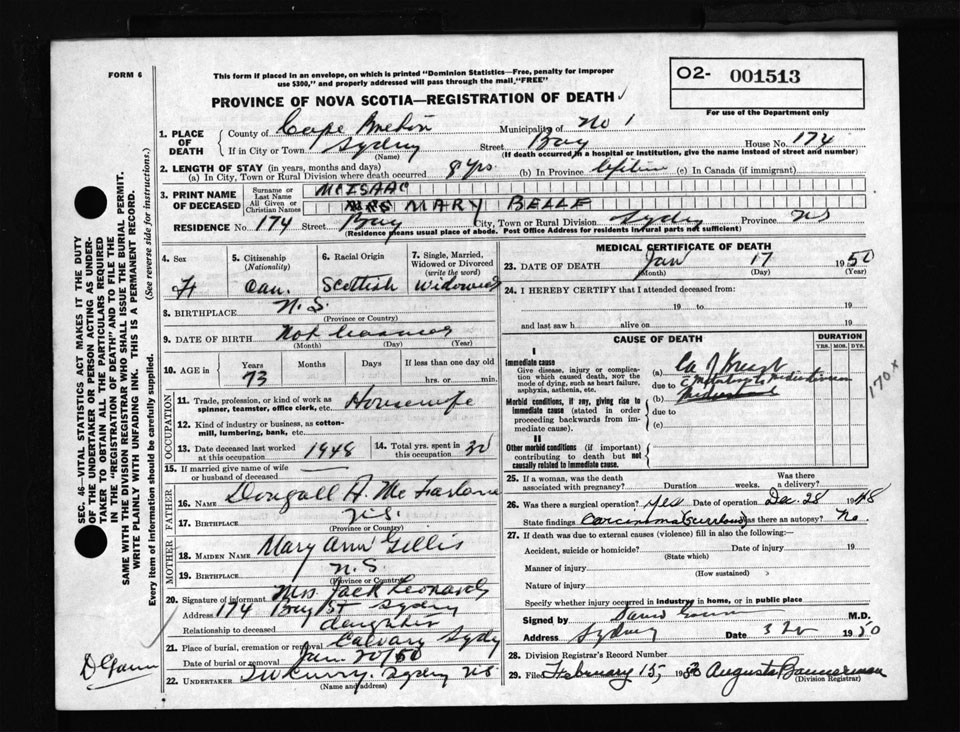 FORM 6
This form if placed in an envelope, on which is printed "Dominion Statistics—Free, penalty for improper
use $300," and properly addressed will pass through the mail "FREE"
O2- 001513
PROVINCE OF NOVA SCOTIA—REGISTRATION OF DEATH
For use of the Department only
1. PLACE OF DEATH
County of Cape Breton Municipality of No 1
If in City or Town Sydney Street Bay House No. 174
(Name) (If death occurred in a hospital or institution, give the name instead of street and number)
2. LENGTH OF STAY (in years, months and days)
(a) In City, Town or Rural Division where death occurred 9 yrs (b) In Province lifetime (c) In Canada (if immigrant)
3. PRINT NAME OF DECEASED
Surname or Last Name MCISAAC
All Given or Christian Names MRS MARY BELLE
RESIDENCE No. 174 Street Bay City, Town or Rural Division Sydney Province NS
(Residence means usual place of abode. Post Office Address for residents in rural parts not sufficient)
4. Sex F
5. Citizenship (Nationality) Can.
6. Racial Origin Scottish
7. Single, Married, Widowed or Divorced (write the word) Widowed
8. BIRTHPLACE N.S.
(Province or Country)
9. DATE OF BIRTH Not
(Month) (Day) (Year)
10. AGE in Years 73 Months Days If less than one day old hrs. or min.
OCCUPATION
11. Trade, profession, or kind of work as spinner, teamster, office clerk, etc. Housewife
12. Kind of industry or business, as cotton-mill, lumbering, bank, etc.
13. Date deceased last worked at this occupation 1948
14. Total yrs. spent in this occupation 30
15. If married give name of wife or husband of deceased
FATHER
16. NAME Dougall A. McFarlane
17. BIRTHPLACE N.S.
(Province or Country)
MOTHER
18. MAIDEN NAME Mary Ann Gillis
19. BIRTHPLACE N.S.
(Province or Country)
20. Signature of informant Mrs. Jack
Address 174 Bay St Sydney
Relationship to deceased daughter
21. Place of burial, cremation or removal Calvary Sydney
Date of burial or removal Jan. 20/50
22. UNDERTAKER Sydney NS
(Name and address)
MEDICAL CERTIFICATE OF DEATH
23. DATE OF DEATH Jan 17 1950
(Month) (Day) (Year)
24. I HEREBY CERTIFY that I attended deceased from:
19 to 19
and last saw h alive on 19
CAUSE OF DEATH
DURATION
YRS. MOS. DYS.
I
Immediate cause
Give disease, injury or complication which caused death, NOT the mode of dying, such as heart failure, asphyxia, asthenia, etc.
(a) Ca of Breast
due to
Morbid conditions, if any, giving rise to immediate cause (stated in order proceeding backwards from immediate cause).
(b)
due to
(c)
II
Other morbid conditions (if important) contributing to death but not causally related to immediate cause.
170 x
25. If a woman, was the death associated with pregnancy? Duration weeks. Was there a delivery?
26. Was there a surgical operation? yes Date of operation Dec 28 1948
State findings Carcinoma Was there an autopsy? No.
27. If death was due to external causes (violence) fill in also the following:—
Accident, suicide or homicide? Date of injury 19
(State which)
Manner of injury
(How sustained)
Nature of injury
Specify whether injury occurred in industry, in home, or in public place
Signed by David M.D.
Address Sydney Date 1950
28. Division Registrar's Record Number
29. Filed February 15, 1950 Augusta Bannerman
(Division Registrar)
SEC. 46—VITAL STATISTICS ACT MAKES IT THE DUTY
OF THE UNDERTAKER OR PERSON ACTING AS UNDER-
TAKER TO OBTAIN ALL THE PARTICULARS REQUIRED
IN THE "REGISTRATION OF DEATH" AND TO FILE THE
SAME WITH THE DIVISION REGISTRAR WHO SHALL ISSUE THE BURIAL PERMIT.
WRITE PLAINLY WITH UNFADING INK. THIS IS A PERMANENT RECORD.
Every item of information should be carefully supplied. (See reverse side for instructions.)